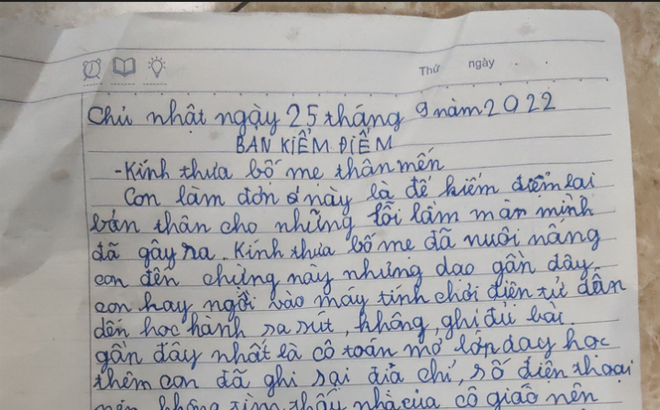 Thứ ngày
Chủ nhật ngày 25 tháng 9 năm 2022
BẢN KIỂM ĐIỂM
-Kính thưa bố mẹ thân mến
Con làm đơn này là để kiểm điểm lại
bản thân cho những lỗi lầm mà mình
đã gây ra. Kính thưa bố mẹ đã nuôi nâng
con đến chừng này nhưng dao gần đây
con hay ngồi vào máy tính chơi điện tử dẫn
đến học hành sa sút, không, ghi đủ bài.
gần đây nhất là cô toán mở lớp day học
thêm con đã ghi sai địa chỉ, số điện thoại
nên không tìm thấy nhà của cô giáo nên